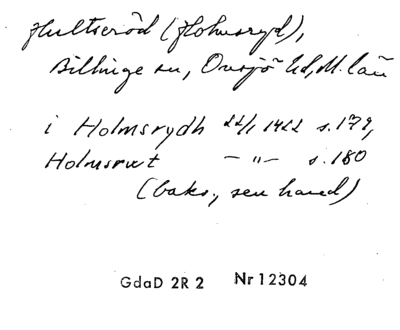 Hultseröd (Holmsryd),
Billinge sn, Onsjö hd, M. län
i Holmsrydh 22/1 1422 s. 179,
Holmsrwt — " — s. 180
(baks., sen hand)
GdaD 2R 2 Nr 12304